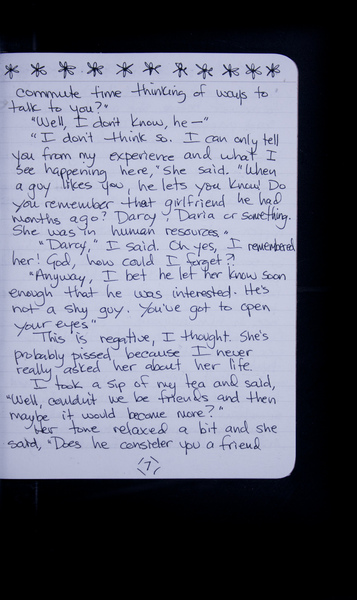 commute time thinking of ways to
talk to you?"
"Well, I don't know, he —"
"I don't think so. I can only tell
you from my experience and what I
see happening here," she said. "When
a guy likes you, he lets you know! Do
you remember that girlfriend he had
months ago? Darcy, Daria or something.
She was in human resources."
"Darcy," I said. Oh yes, I remembered
her! God, how could I forget?!
"Anyway, I bet he let her know soon
enough that he was interested. He's
not a shy guy. You've got to open
your eyes."
This is negative, I thought. She's
probably pissed because I never
really asked her about her life.
I took a sip of my tea and said,
"Well, couldn't we be friends and then
maybe it would become more?"
Her tone relaxed a bit and she
said, "Does he consider you a friend
7